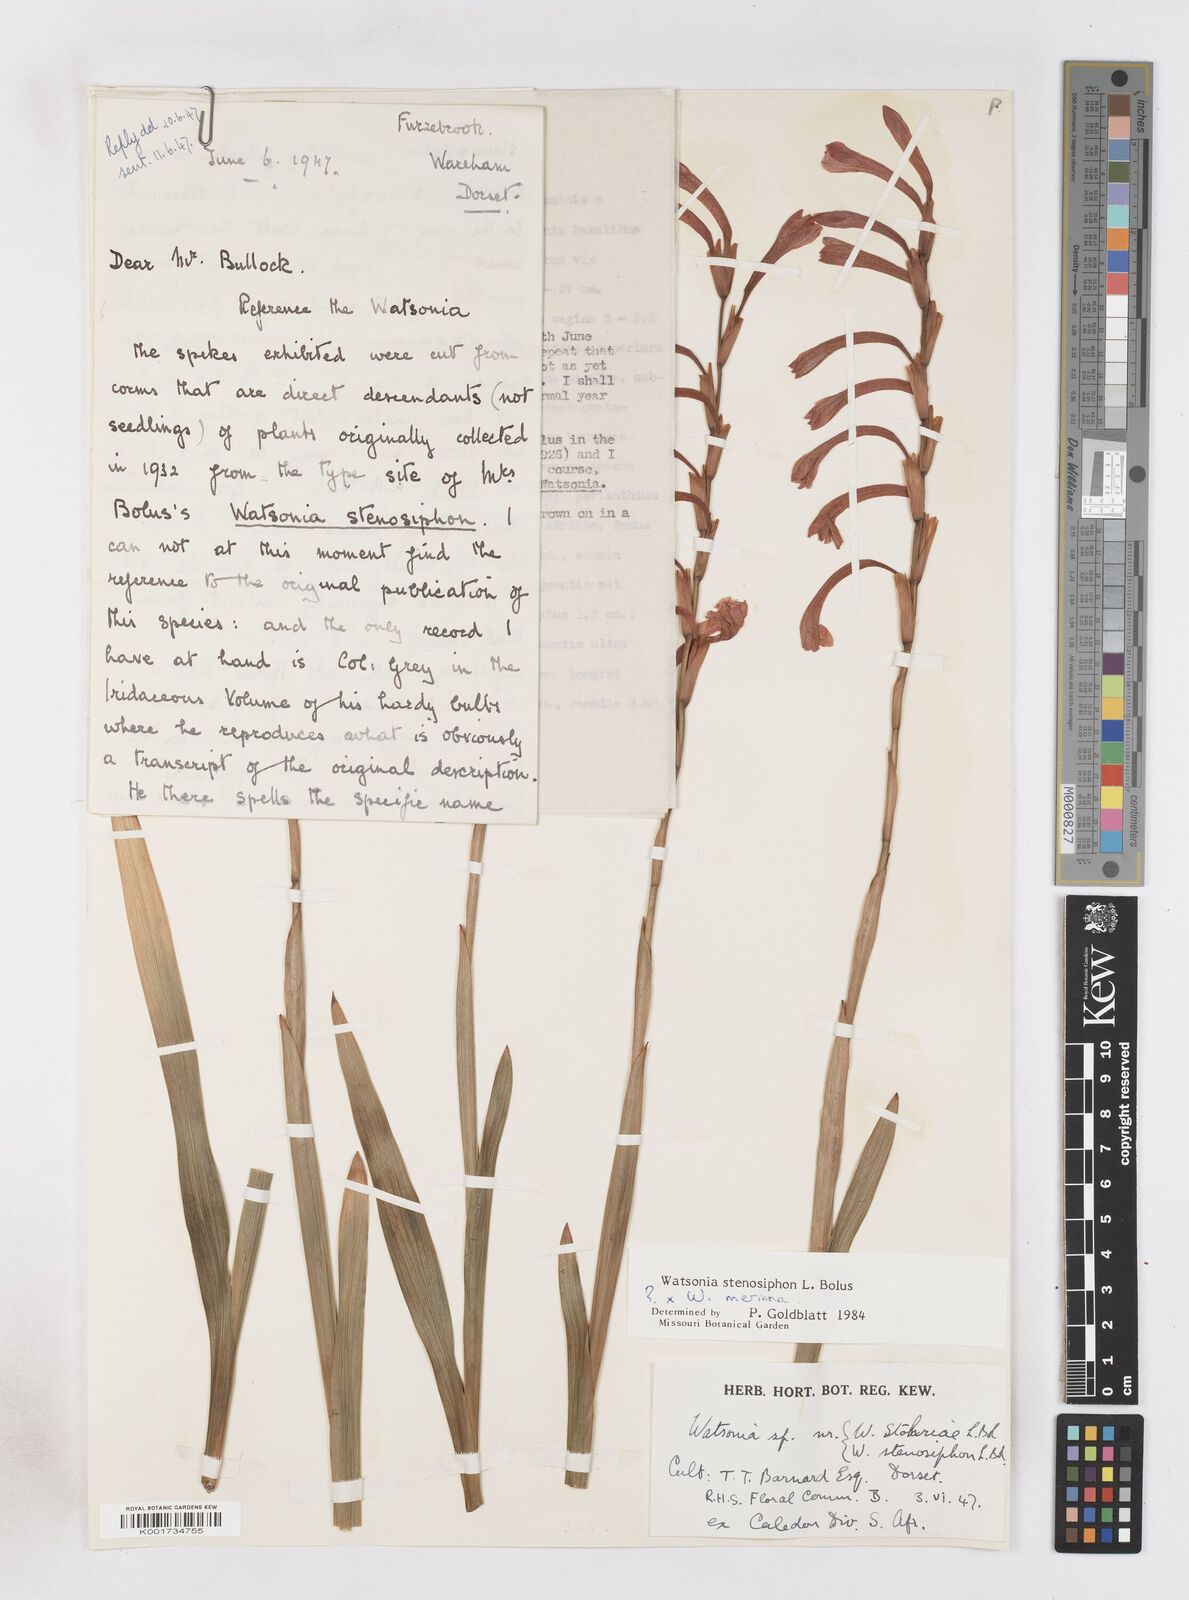 Reply dd. 10.6.47
sent. 11.6.47.
Furzebrook.
June 6. 1947.
Wareham
Dorset.
Dear Mr. Bullock.
Reference the Watsonia
the spikes exhibited were cut from
corms that are direct descendants (not
seedlings) of plants originally collected
in 1932 from the type site of Mrs
Bolus's Watsonia stenosiphon. I
can not at this moment find the
reference to the original publication of
this species: and the only record I
have at hand is Col: Grey in the
Iridaceous Volume of his hardy bulbs
where he reproduces what is obviously
a transcript of the original description.
He there spells the specific name
th June
epeat that
ot as yet
. I shall
rmal year
lus in the
926) and I
course,
Watsonia.
rown on in a
Watsonia stenosiphon L. Bolus
? x W. meriana
Determined by P. Goldblatt 1984
Missouri Botanical Garden
HERB. HORT. BOT. REG. KEW.
Watsonia sp. nr. { W. Stokeriae L.Bol.
{ W. stenosiphon L.Bol.
Cult: T. T. Barnard Esq. Dorset.
R.H.S. Floral Comm. B. 3. vi. 47.
ex Caledon Div. S. Afr.
ROYAL BOTANIC GARDENS KEW
K001734755
inches
centimeters
Don Williams
M000827
Royal Botanic Gardens
Kew
0 1 2 3 4 5 6 7 8 9 10
cm
copyright reserved